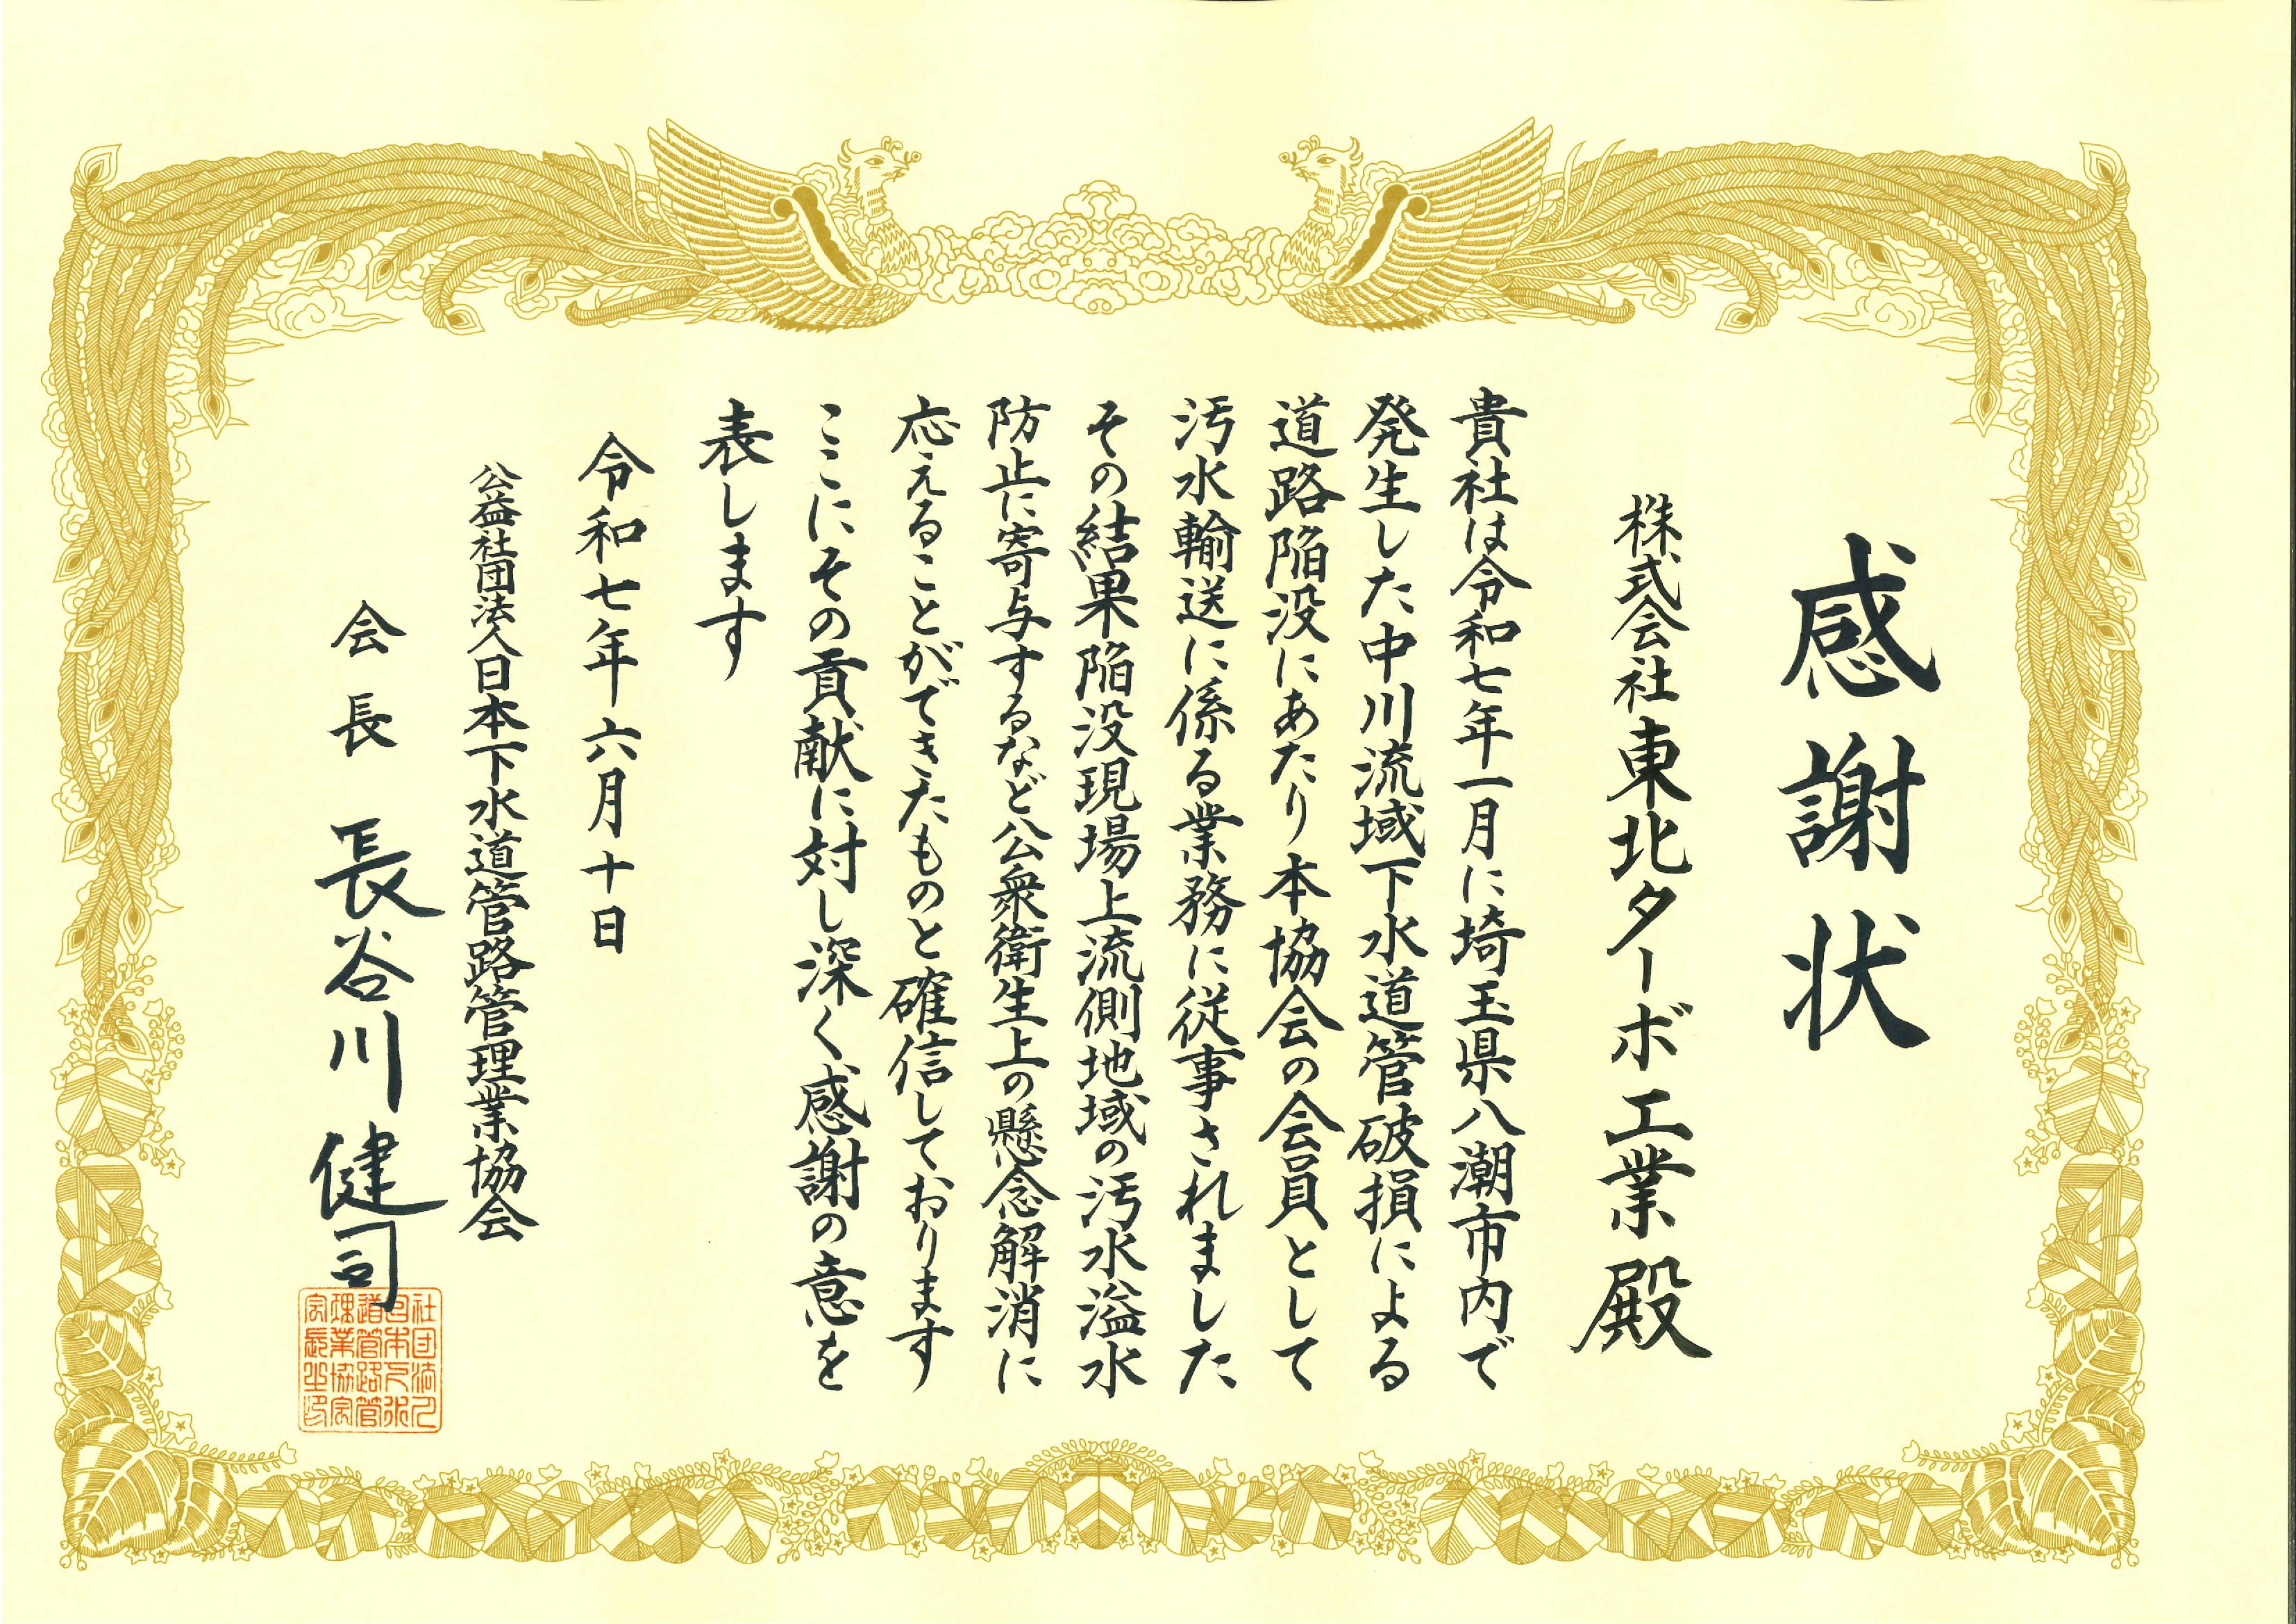 感謝状
株式会社東北ターボ工業殿
貴社は令和七年一月に埼玉県八潮市内で
発生した中川流域下水道管破損による
道路陥没にあたり本協会の会員として
汚水輸送に係る業務に従事されました
その結果陥没現場上流側地域の汚水溢水
防止に寄与するなど公衆衛生上の懸念解消に
応えることができたものと確信しております
ここにその貢献に対し深く感謝の意を
表します
令和七年六月十日
公益社団法人日本下水道管路管理業協会
会長 長谷川健司
社団法人
日本下水
道管路管
理業協会
会長之印